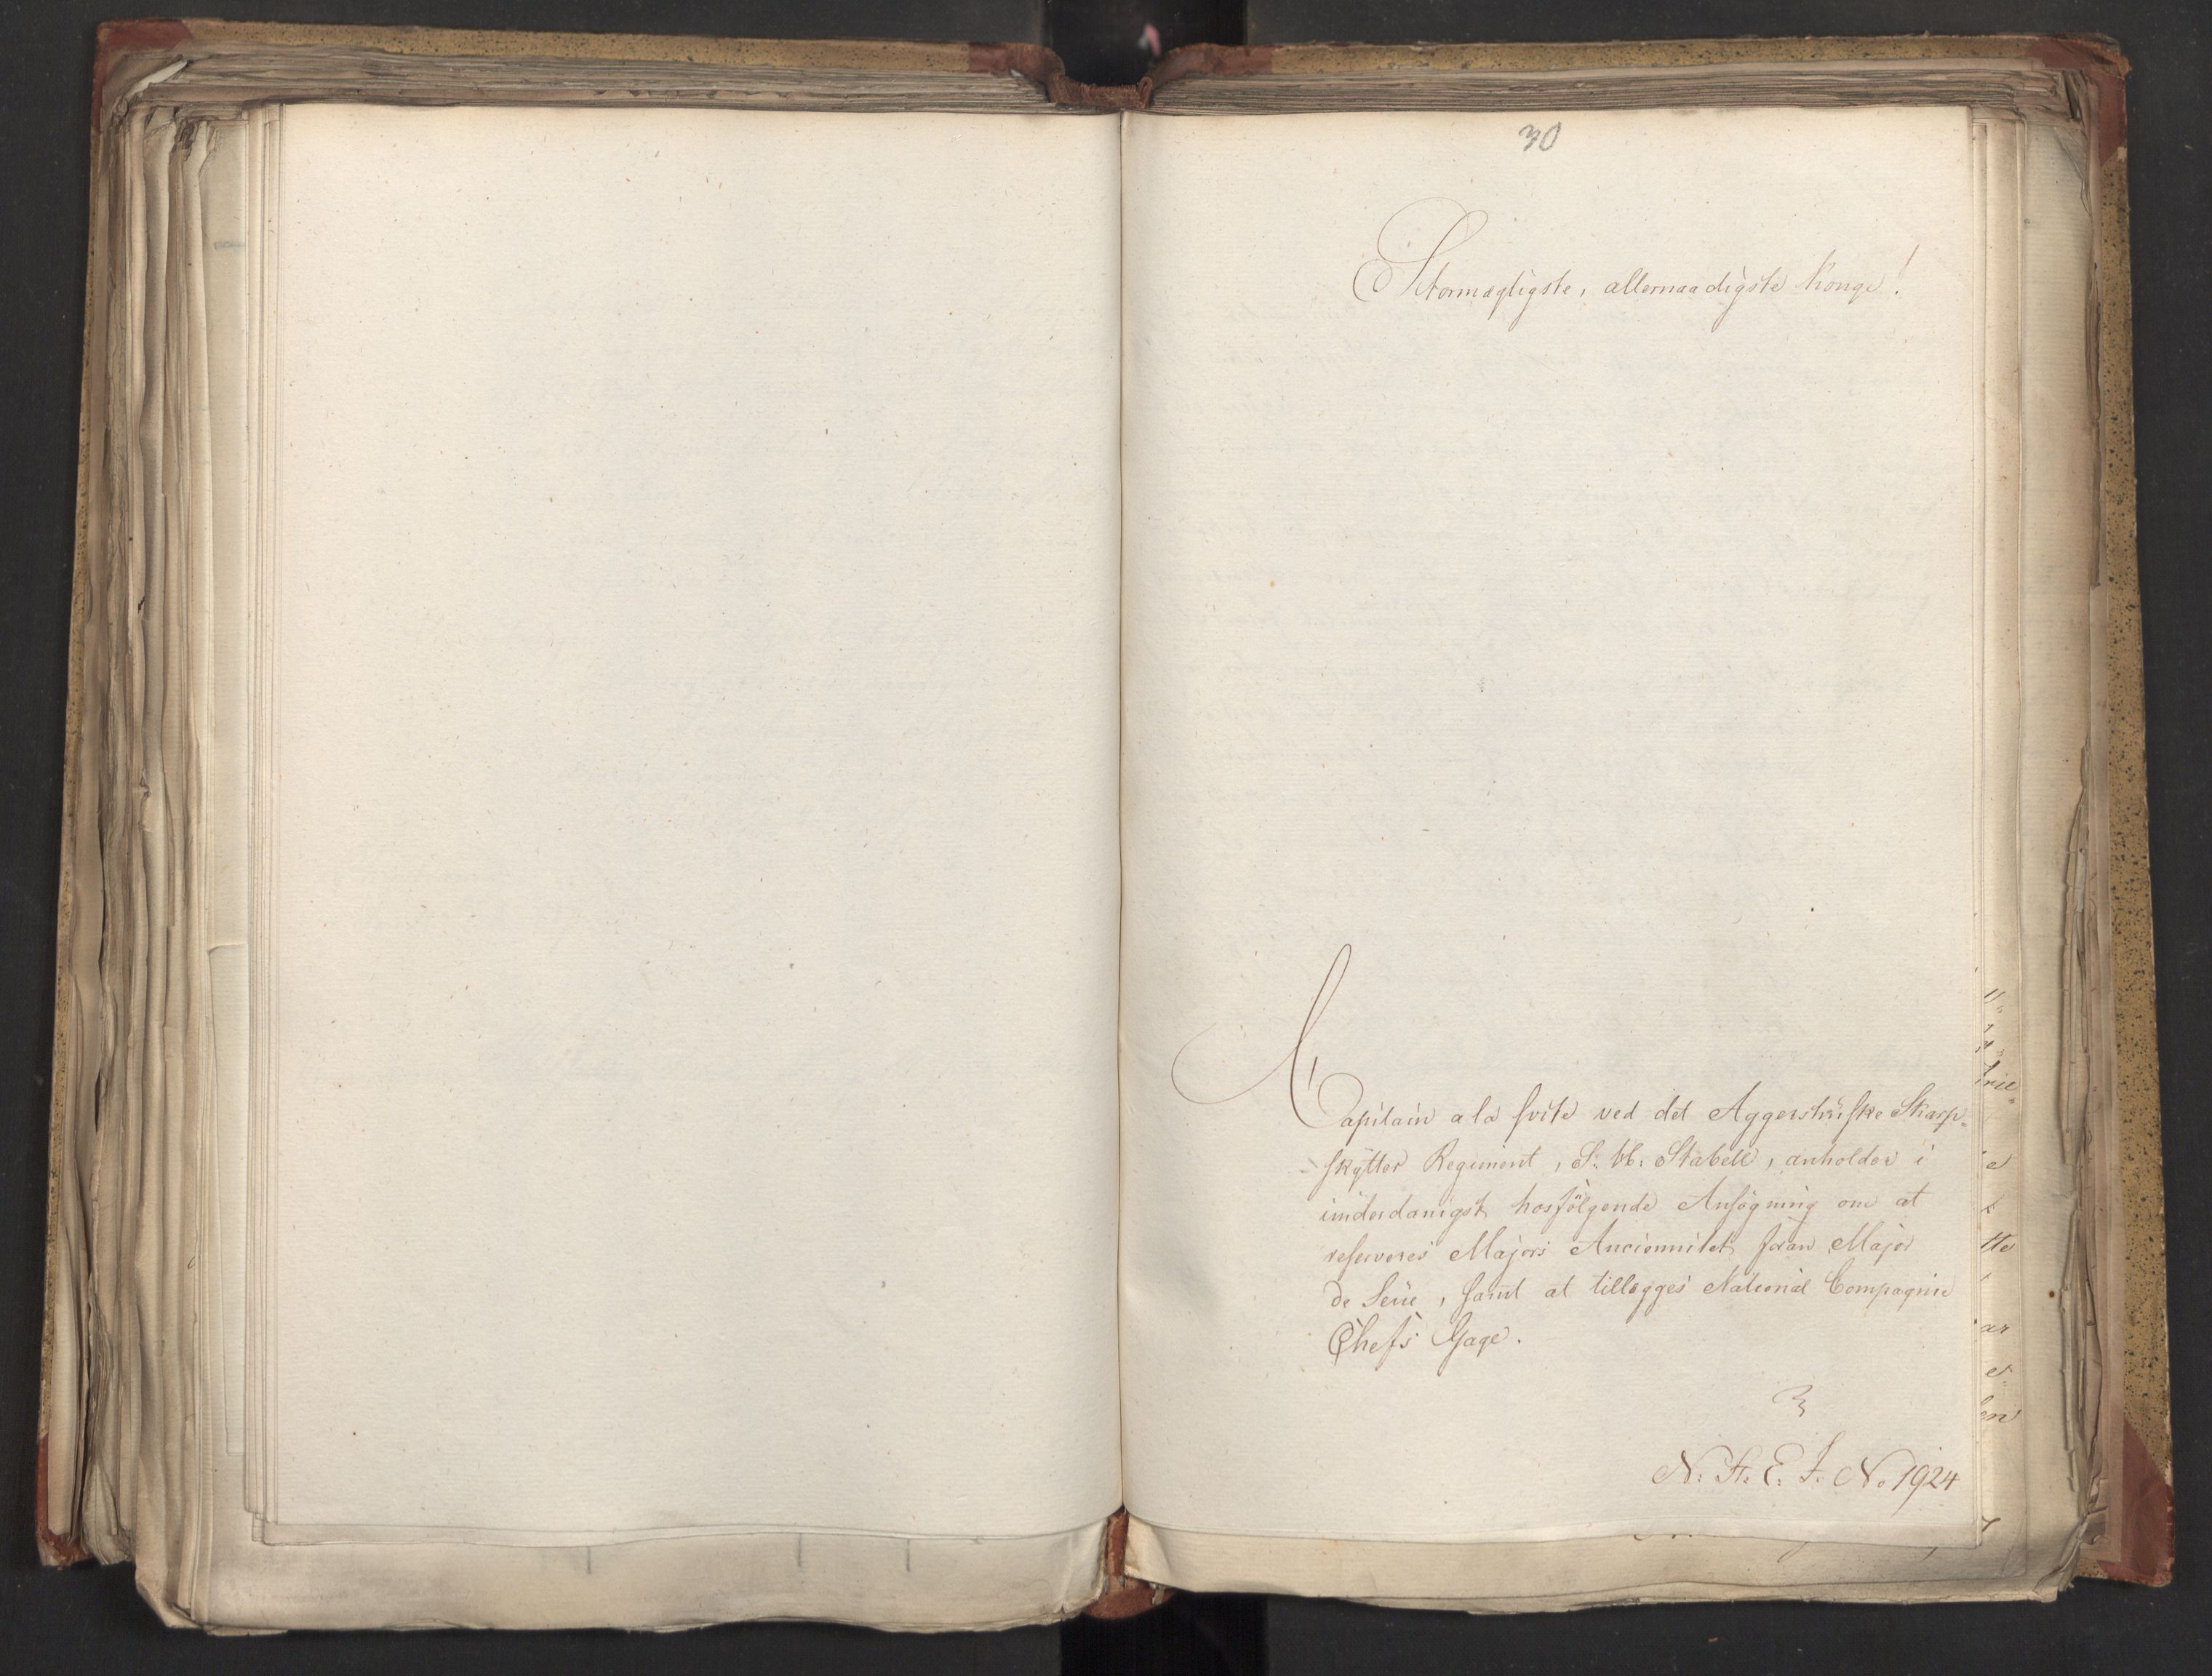 30
Stormægtigste, allernaadigste Konge!
Capitain a la suite ved det Aggershusske Skarp-
skytter Regiment, S: W: Stabell, anholder i
underdanigst hosfölgende Ansögning om at
reserveres Majors Anciennitet foran Major
de Seue, samt at tillægges National Compagnie
Chefs Gage.
N: A: E: J: No 1924